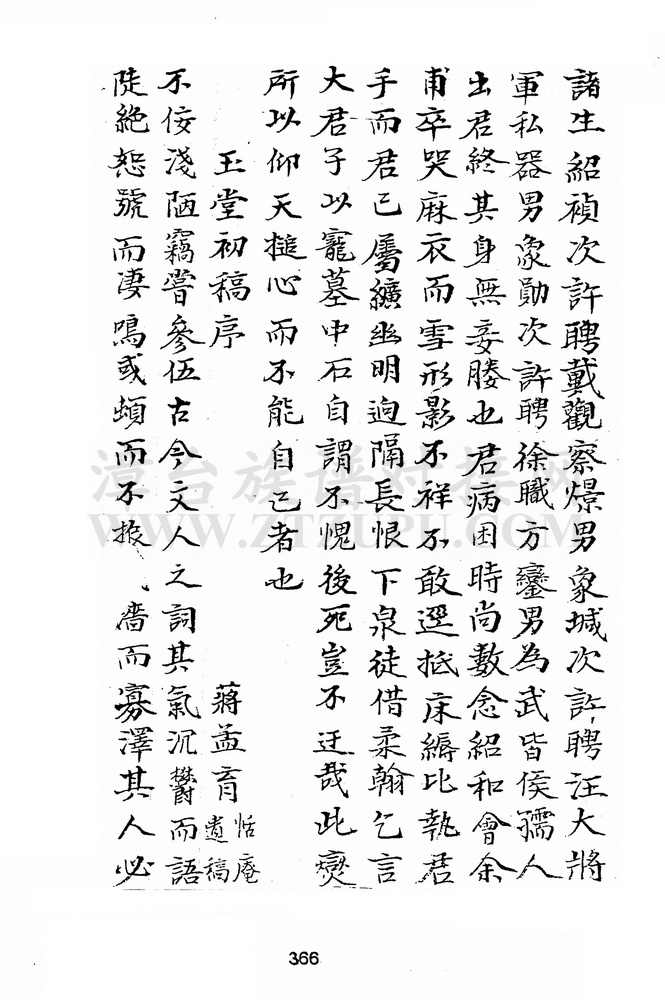 諸生紹禎次許聘戴觀察燝男象堿次許聘汪大將
軍私器男象勛次許聘徐職方鑾男為武皆侯孺人
出君終其身無妾媵也君病困時尚數念紹和會余
甫卒哭麻衣而雪形影不祥不敢逕抵床縟比執君
手而君已屬纊幽明逈隔長恨下泉徒借柔翰乞言
大君子以寵墓中石自謂不愧後死豈不迂哉此爕
所以仰天搥心而不能自已者也
玉堂初稿序
蔣孟育 恬庵遺稿
不佞淺陋竊嘗參伍古今文人之詞其氣沉鬱而語
陡絶怨號而凄鳴或蝢而不振、嗇而寡澤其人必
漳台族谱对接网
WWW.ZTZUPU.COM
366